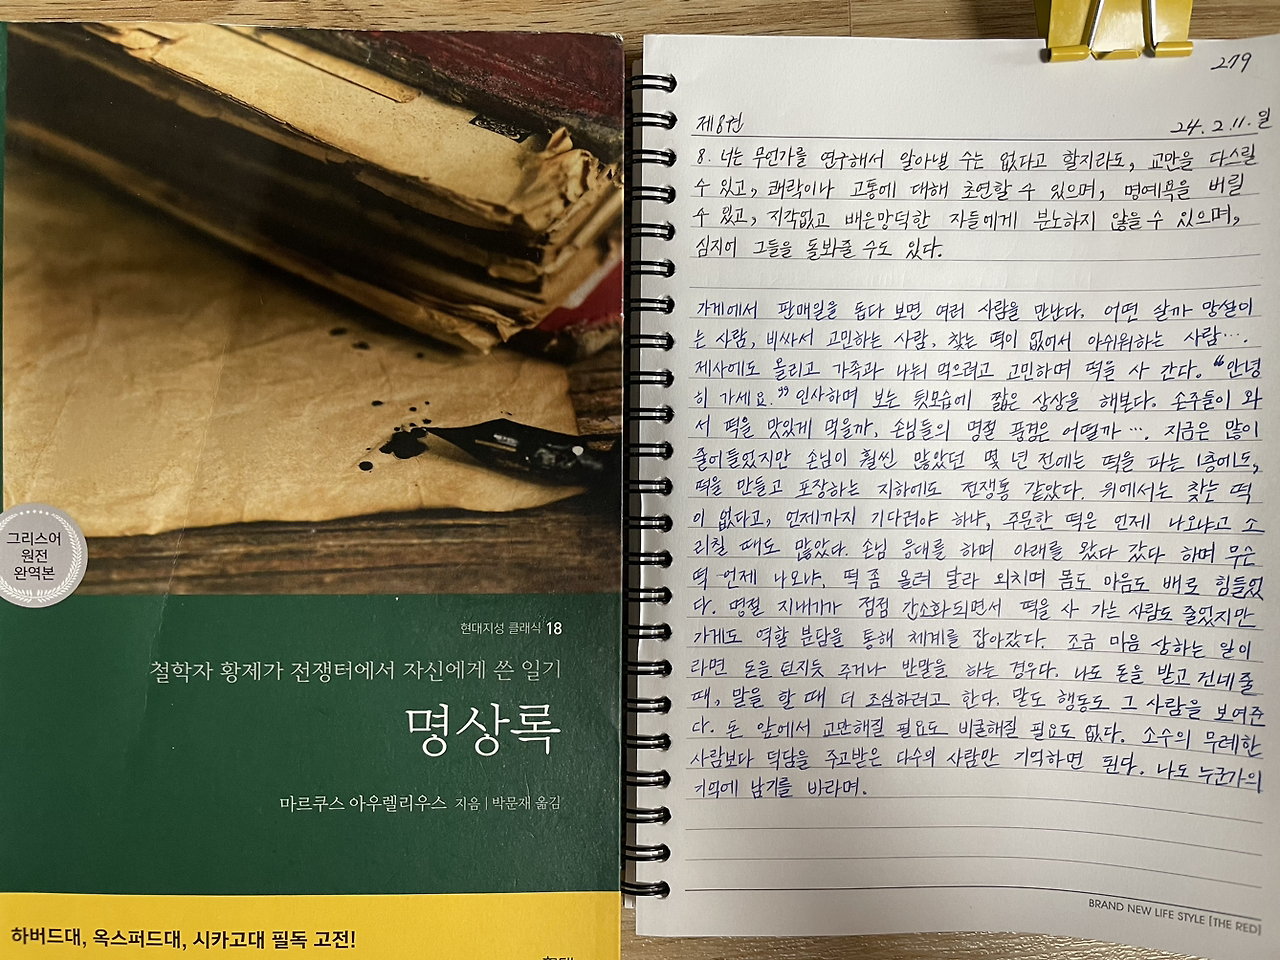 그리스어
원전
완역본
현대지성 클래식 18
철학자 황제가 전쟁터에서 자신에게 쓴 일기
명상록
마르쿠스 아우렐리우스 지음 | 박문재 옮김
하버드대, 옥스퍼드대, 시카고대 필독 고전!
279
제8권
24. 2. 11. 일
8. 너는 무언가를 연구해서 알아낼 수는 없다고 할지라도, 교만을 다스릴
수 있고, 쾌락이나 고통에 대해 초연할 수 있으며, 명예욕을 버릴
수 있고, 지각없고 배은망덕한 자들에게 분노하지 않을 수 있으며,
심지어 그들을 돌봐줄 수도 있다.
가게에서 판매일을 돕다 보면 여러 사람을 만난다. 어떤 살까 망설이
는 사람, 비싸서 고민하는 사람, 찾는 떡이 없어서 아쉬워하는 사람….
제사에도 올리고 가족과 나눠 먹으려고 고민하며 떡을 사 간다. “안녕
히 가세요.” 인사하며 보는 뒷모습에 짧은 상상을 해본다. 손주들이 와
서 떡을 맛있게 먹을까, 손님들의 명절 풍경은 어떨까…. 지금은 많이
줄어들었지만 손님이 훨씬 많았던 몇 년 전에는 떡을 파는 1층에도,
떡을 만들고 포장하는 지하에도 전쟁통 같았다. 위에서는 찾는 떡
이 없다고, 언제까지 기다려야 하냐, 주문한 떡은 언제 나오냐고 소
리칠 때도 많았다. 손님 응대를 하며 아래를 왔다 갔다 하며 무슨
떡 언제 나오냐, 떡 좀 올려 달라 외치며 몸도 마음도 배로 힘들었
다. 명절 지내기가 점점 간소화되면서 떡을 사 가는 사람도 줄었지만
가게도 역할 분담을 통해 체계를 잡아갔다. 조금 마음 상하는 일이
라면 돈을 던지듯 주거나 반말을 하는 경우다. 나도 돈을 받고 건네줄
때, 말을 할 때 더 조심하려고 한다. 말도 행동도 그 사람을 보여준
다. 돈 앞에서 교만해질 필요도 비굴해질 필요도 없다. 소수의 무례한
사람보다 덕담을 주고받은 다수의 사람만 기억하면 된다. 나도 누군가의
기억에 남기를 바라며.
BRAND NEW LIFE STYLE [THE RED]